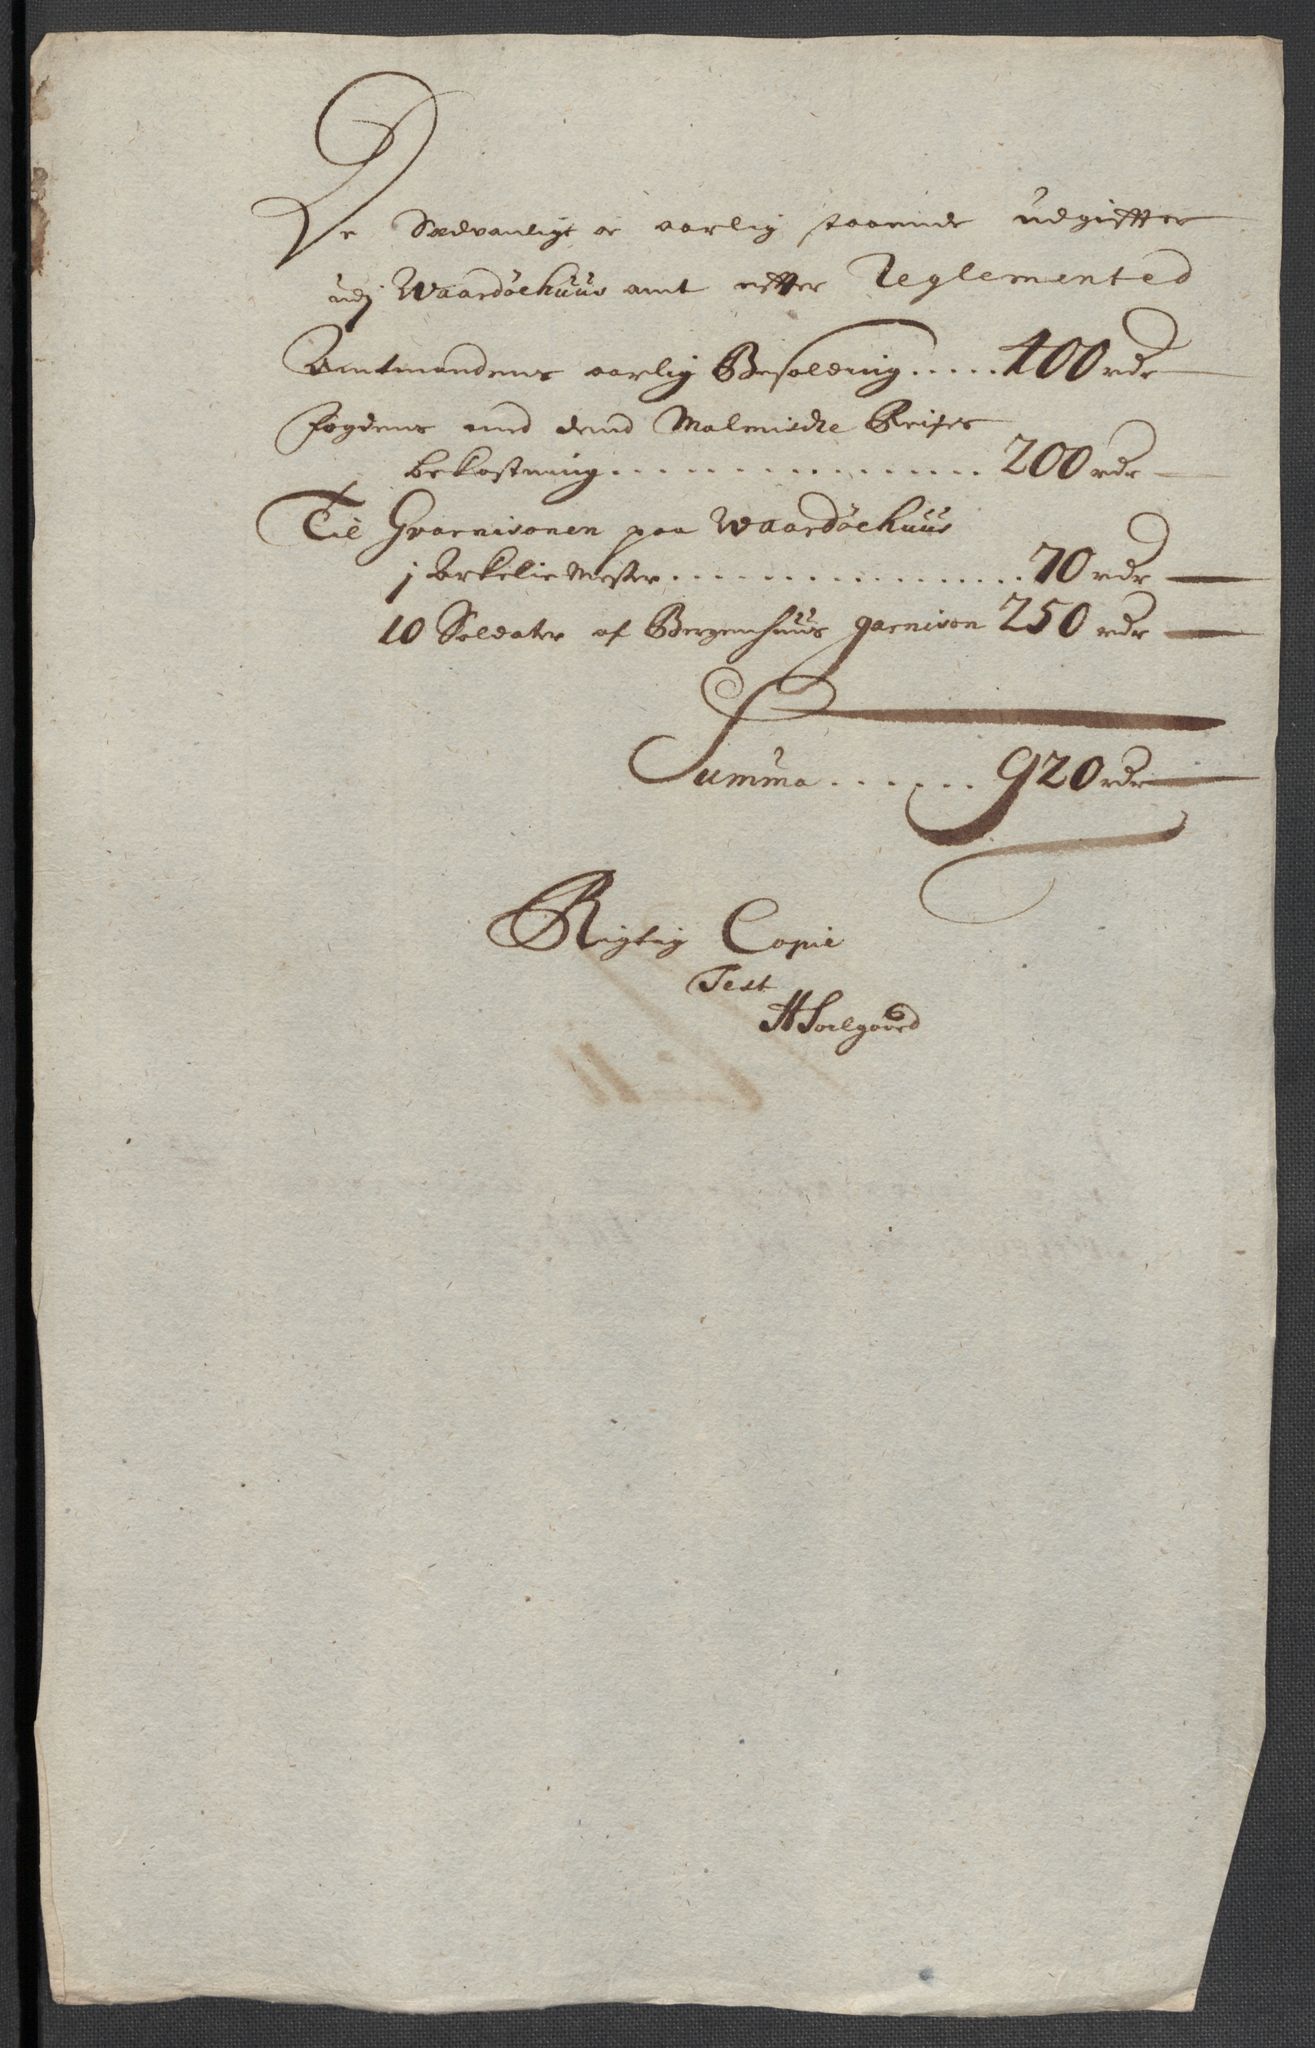 De Sædvanligt oc aarlig staaende udgiffter
udj Waardøehuus amt effter Reglemented
Amtmandens aarlig Besolding ..... 400 rdr
Fogdens med dend Malmiske Reises
bekostning ................ 200 rdr
Til Gvarnisonen paa Waardøehuus
1 Arkelie Mester ................ 70 rdr
10 Soldater af Bergenhuus garnison 250 rdr
Summa ...... 920 rdr
Rigtig Copie
Test
H Soelgaard